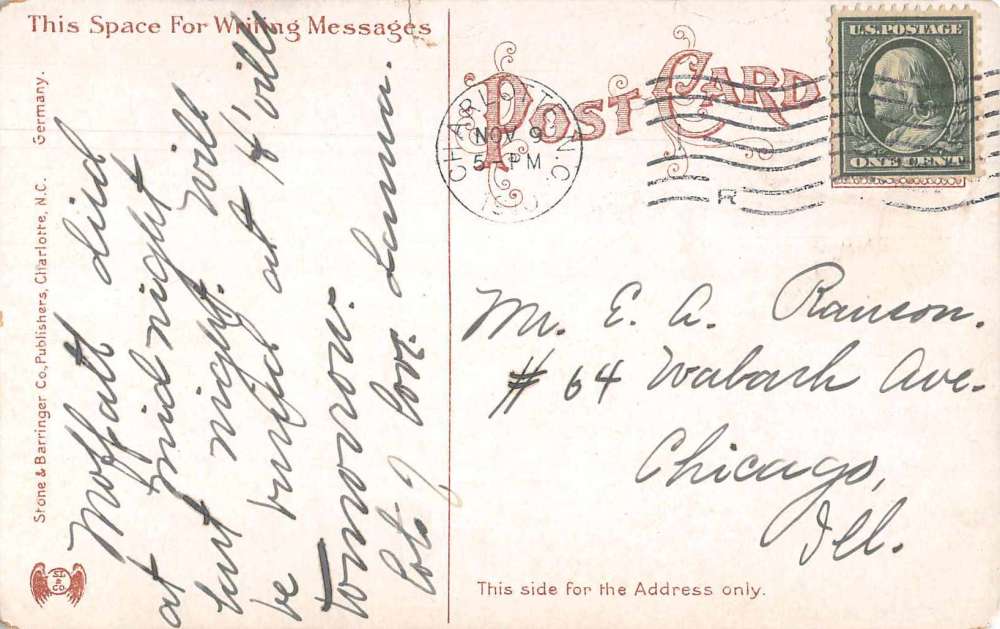 This Space For Writing Messages
Moffatt died
at midnight
last night. Will
be buried at H'ville
Tomorrow.
Lots of love. Lama.
Stone & Barringer Co., Publishers, Charlotte, N.C. Germany.
POST CARD
CHARLOTTE, N.C.
NOV 9
5 - PM
1910
R
U.S. POSTAGE
ONE CENT
Mr. E. A. Ranson.
# 64 Wabash Ave.
Chicago,
Ill.
This side for the Address only.